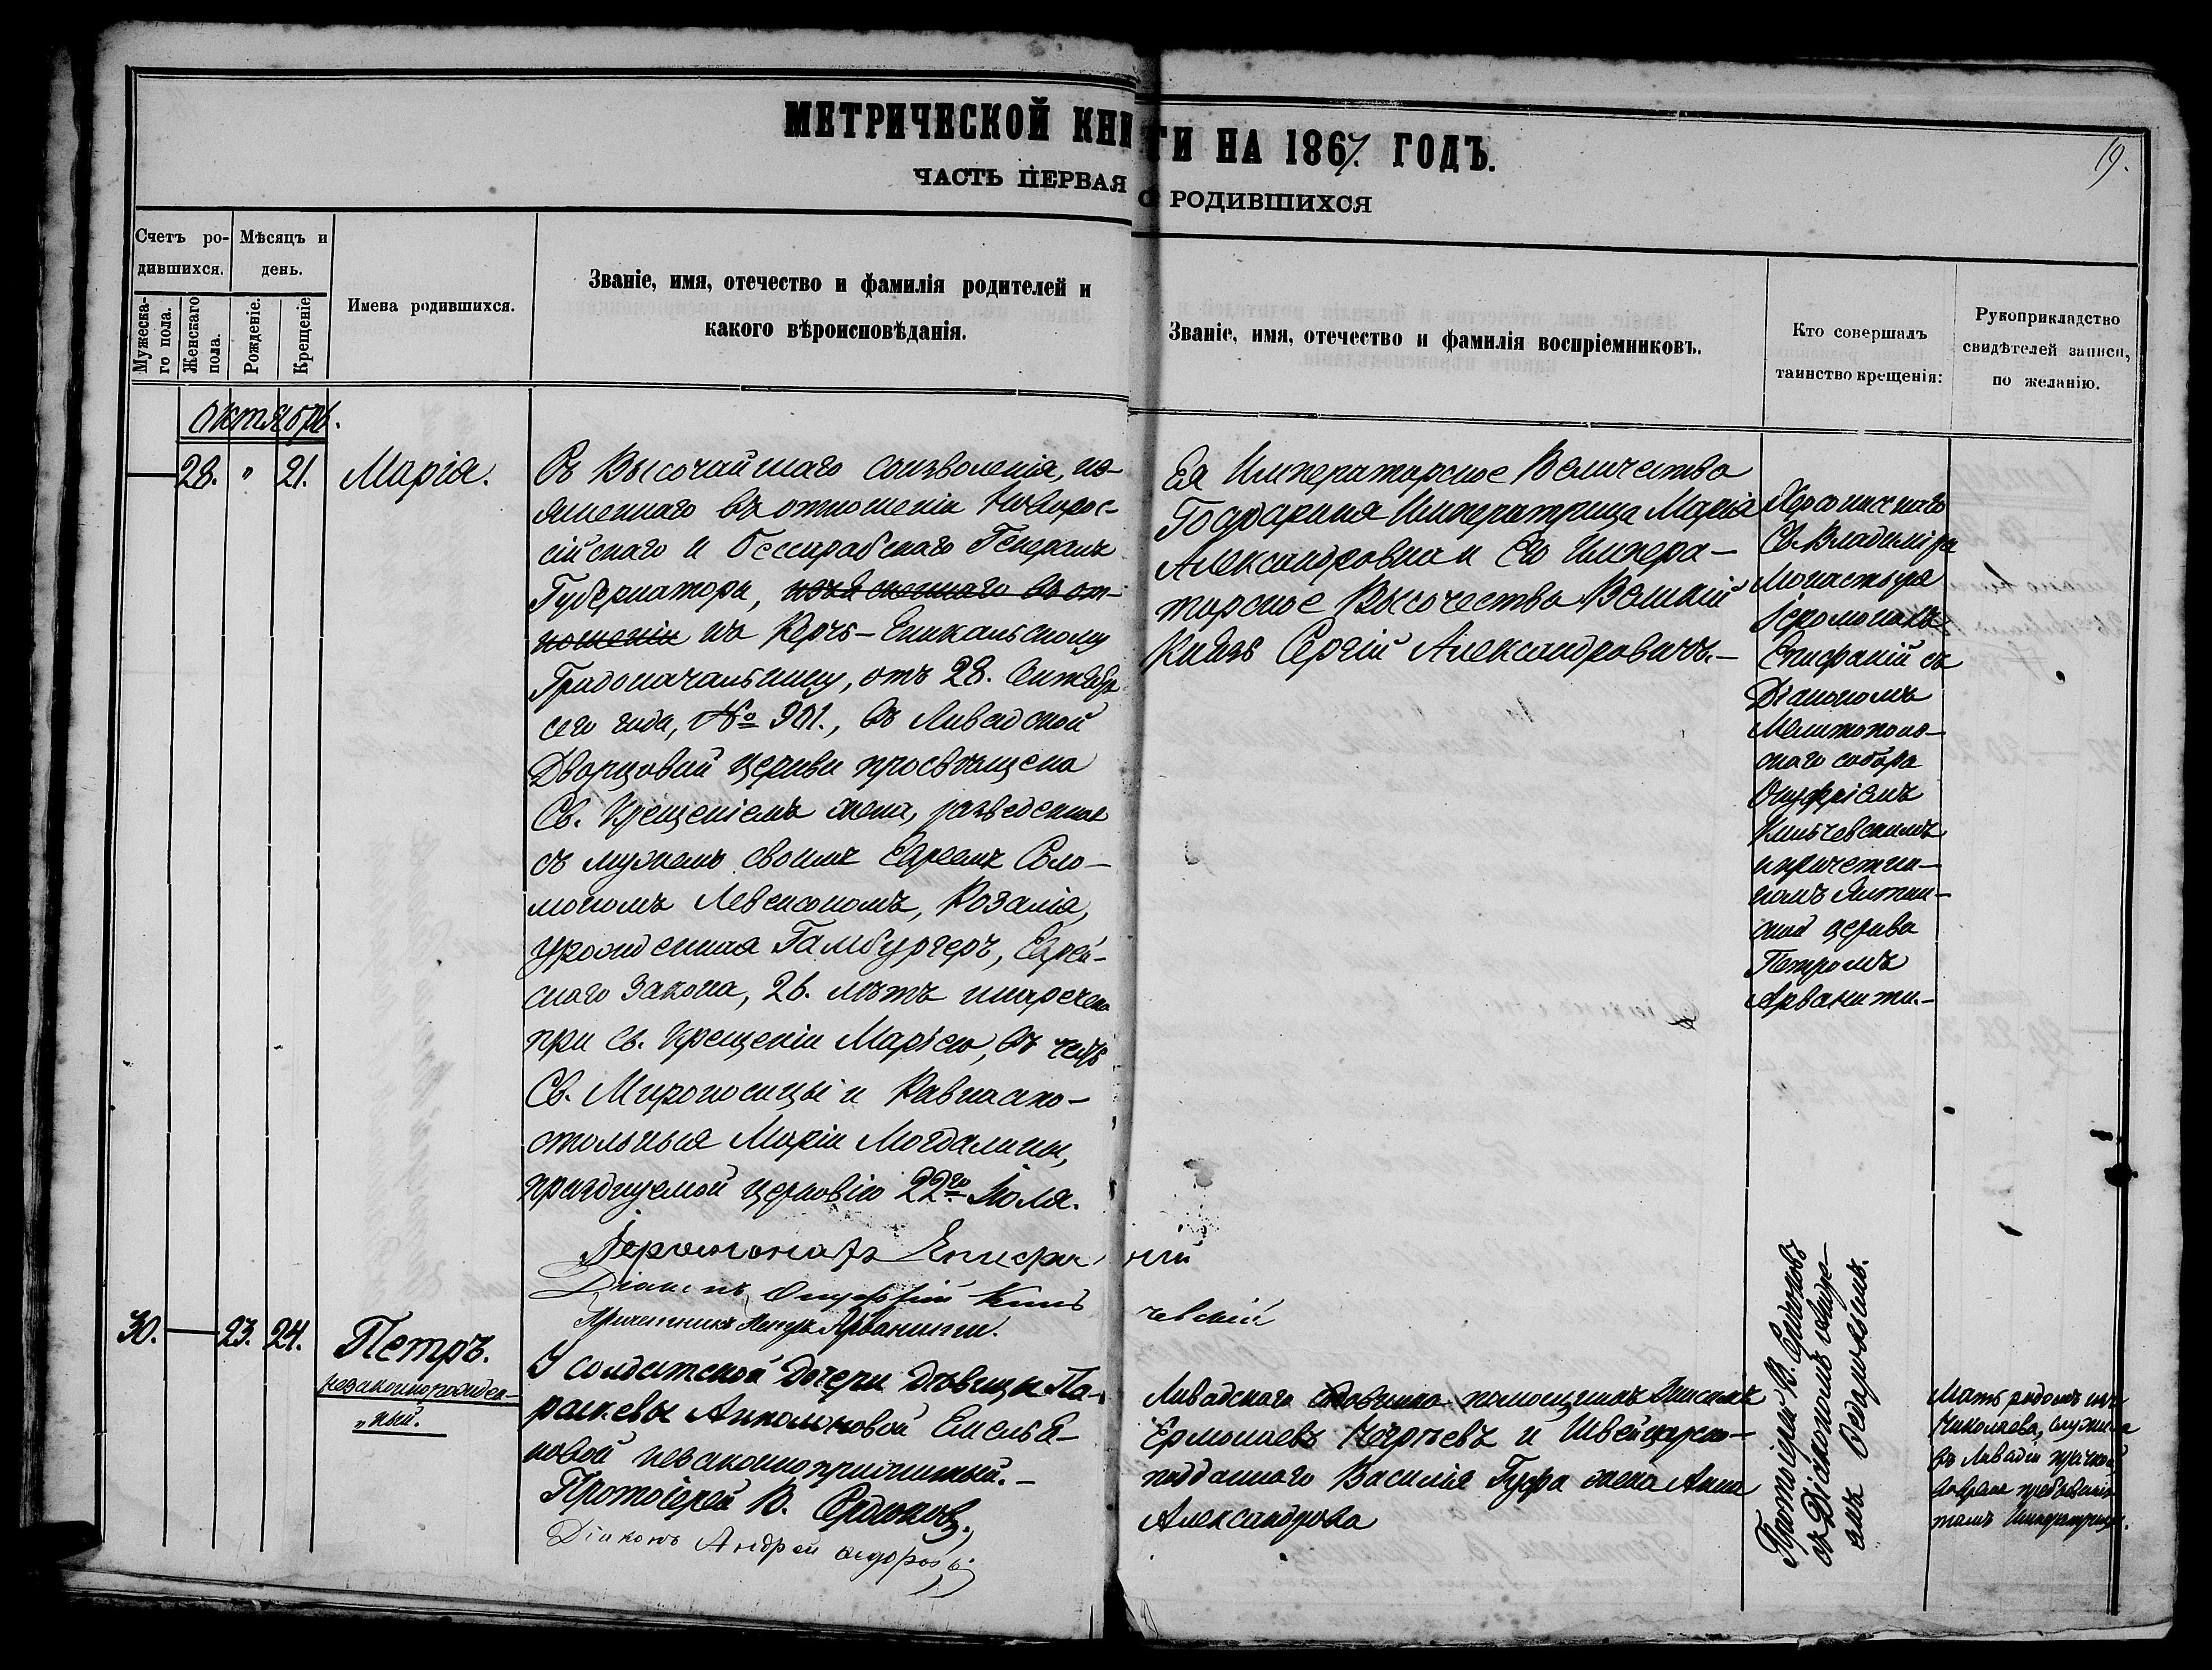 МЕТРИЧЕСКОЙ КНИГИ НА 1867. ГОДЪ.
19.
ЧАСТЬ ПЕРВАЯ О РОДИВШИХСЯ
Счетъ ро-
дившихся.
Мужеска-
го пола.
Женскаго
пола.
Мѣсяцъ и
день.
Рожденіе.
Крещеніе
Имена родившихся.
Званіе, имя, отечество и фамилія родителей и
какого вѣроисповѣданія.
Званіе, имя, отечество и фамилія воспріемниковъ.
Кто совершалъ
таинство крещенія:
Рукоприкладство
свидѣтелей записи,
по желанію.
Октябрь.
28. " 21. Марія.
Съ Высочайшаго соизволенія, изъ-
ясненнаго въ отношеніи Новорос-
сійскаго и Бессарабскаго Генералъ
Губернатора, изъясненнаго въ от-
ношеніи къ Керчь-Еникальскому
Градоначальнику, отъ 28. Сентября
сего года, № 901., въ Ливадской
Дворцовой церкви просвѣщена
Св. Крещеніемъ жена, разведенная
съ мужемъ своимъ Евреемъ Соло-
мономъ Левенсономъ, Розалія,
урожденная Гамбургеръ, Еврей-
скаго закона, 26. лѣтъ и наречена
при Св. Крещеніи Маріею, въ честь
Св. Мироносицы и Равноапо-
стольныя Маріи Магдалины,
празднуемой церковію 22го Іюля.
Іеромонахъ Епифаній
Діаконъ Онуфрій Кильчевскій
Причетникъ Петръ Арванити.
Ея Императорское Величество
Государыня Императрица Марія
Александровна и Его Импера-
торское Высочество Великій
Князь Сергій Александровичъ.-
Херсонисскаго
Св. Владиміра
Монастыря
Іеромонахъ
Епифаній съ
Діакономъ
Мелитополь-
скаго собора
Онуфріемъ
Кильчевскимъ
и причетни-
комъ Ялтин-
ской церкви
Петромъ
Арванити.-
30. — 23. 24. Петръ.
незаконнорожден-
ный.
У солдатской дочери дѣвицы Па-
раскевы Емелья-
новой незаконноприжитый.-
Протоіерей В.
Діаконъ Андрей
Ливадскаго помощникъ
и Швейцарско-
подданнаго Василія Гуфа жена Анна
Александрова
Протоіерей В.
съ Діакономъ Андре-
емъ
Мать родомъ изъ
Николаева, служила
въ Ливадіи прачкой
во время пребыванія
тамъ Императрицы.